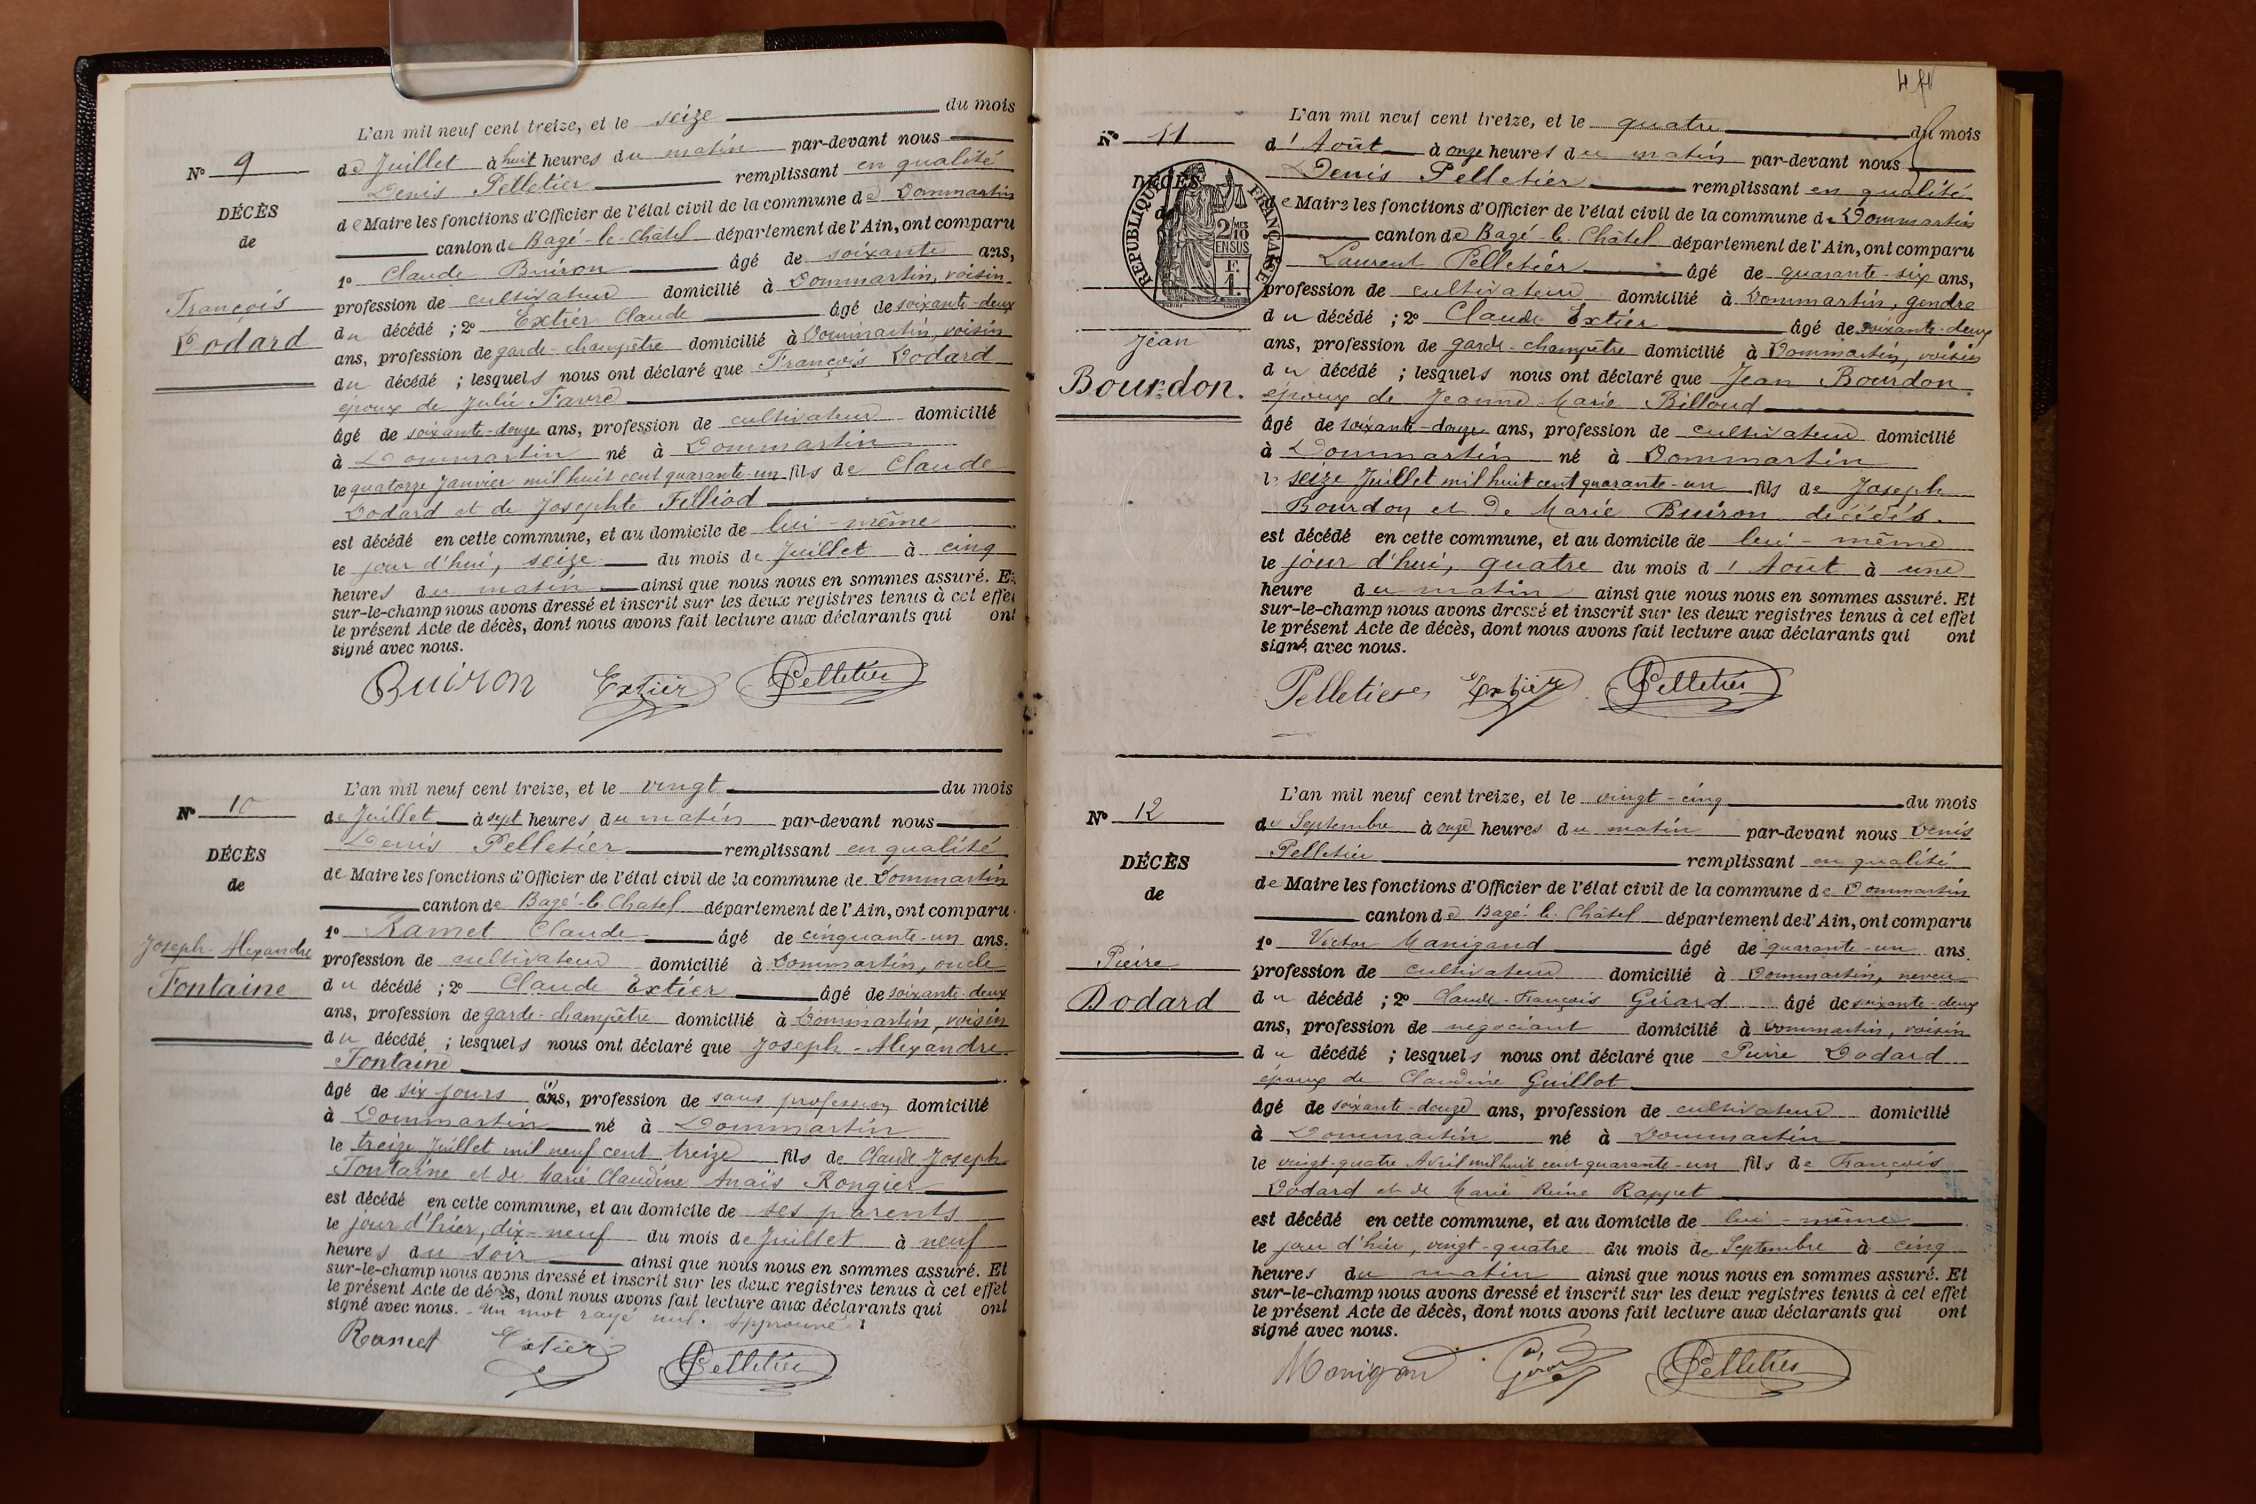 L'an mil neuf cent treize, et le seize du mois
de Juillet à huit heures du matin par-devant nous
Denis Pelletier remplissant en qualité
de Maire les fonctions d'Officier de l'état civil de la commune de Dommartin
canton de Bagé-le-Châtel département de l'Ain, ont comparu
1º Claude Buiron âgé de soixante ans,
profession de cultivateur domicilié à Dommartin, voisin
du décédé ; 2º Extier Claude âgé de soixante-deux
ans, profession de garde-champêtre domicilié à Dommartin, voisin
du décédé ; lesquels nous ont déclaré que François Dodard
époux de Julie Favre
âgé de soixante-douze ans, profession de cultivateur domicilié
à Dommartin né à Dommartin
le quatorze Janvier mil huit cent quarante-un fils de Claude
Dodard et de Josephte Felliod
est décédé en cette commune, et au domicile de lui-même
le jour d'hui, seize du mois de Juillet à cinq
heures du matin ainsi que nous nous en sommes assuré. Et
sur-le-champ nous avons dressé et inscrit sur les deux registres tenus à cet effet
le présent Acte de décès, dont nous avons fait lecture aux déclarants qui ont
signé avec nous.
Buiron Extier Pelletier
Nº 9
DÉCÈS
de
François
Dodard
L'an mil neuf cent treize, et le vingt du mois
de Juillet à sept heures du matin par-devant nous
Denis Pelletier remplissant en qualité
de Maire les fonctions d'Officier de l'état civil de la commune de Dommartin
canton de Bagé-le-Chatel département de l'Ain, ont comparu
1º Ramet Claude âgé de cinquante-un ans.
profession de cultivateur domicilié à Dommartin, oncle
du décédé ; 2º Claude Extier âgé de soixante-deux
ans, profession de garde-champêtre domicilié à Dommartin, voisin
du décédé ; lesquels nous ont déclaré que Joseph-Alexandre
Fontaine
âgé de six jours ans, profession de sans profession domicilié
à Dommartin né à Dommartin
le treize Juillet mil neuf cent treize fils de Claude Joseph
Fontaine et de Marie Claudine Anaïs Rongier
est décédé en cette commune, et au domicile de ses parents
le jour d'hier, dix-neuf du mois de Juillet à neuf
heures du soir ainsi que nous nous en sommes assuré. Et
sur-le-champ nous avons dressé et inscrit sur les deux registres tenus à cet effet
le présent Acte de décès, dont nous avons fait lecture aux déclarants qui ont
signé avec nous. - Un mot rayé nul. Approuvé
Ramet Extier Pelletier
Nº 10
DÉCÈS
de
Joseph-Alexandre
Fontaine
L'an mil neuf cent treize, et le quatre du mois
d'Août à onze heures du matin par-devant nous
Denis Pelletier remplissant en qualité
de Maire les fonctions d'Officier de l'état civil de la commune de Dommartin
canton de Bagé-le-Châtel département de l'Ain, ont comparu
Laurent Pelletier âgé de quarante-six ans,
profession de cultivateur domicilié à Dommartin, gendre
du décédé ; 2º Claude Extier âgé de soixante-deux
ans, profession de garde-champêtre domicilié à Dommartin, voisin
du décédé ; lesquels nous ont déclaré que Jean Bourdon
époux de Jeanne-Marie Billoud
âgé de soixante-douze ans, profession de cultivateur domicilié
à Dommartin né à Dommartin
le seize Juillet mil huit cent quarante-un fils de Joseph
Bourdon et de Marie Buiron décédés.
est décédé en cette commune, et au domicile de lui-même
le jour d'hui, quatre du mois d'Août à une
heure du matin ainsi que nous nous en sommes assuré. Et
sur-le-champ nous avons dressé et inscrit sur les deux registres tenus à cet effet
le présent Acte de décès, dont nous avons fait lecture aux déclarants qui ont
signé avec nous.
Pelletier Extier Pelletier
Nº 11
DÉCÈS
de
RÉPUBLIQUE FRANÇAISE
2/10
EN SUS
F.
1.
Jean
Bourdon.
L'an mil neuf cent treize, et le vingt-cinq du mois
de Septembre à onze heures du matin par-devant nous Denis
Pelletier remplissant en qualité
de Maire les fonctions d'Officier de l'état civil de la commune de Dommartin
canton de Bagé-le-Châtel département de l'Ain, ont comparu
1º Victor Manigand âgé de quarante-un ans.
profession de cultivateur domicilié à Dommartin, neveu
du décédé ; 2º Claude-François Girard âgé de soixante-deux
ans, profession de négociant domicilié à Dommartin, voisin
du décédé ; lesquels nous ont déclaré que Pierre Dodard
époux de Claudine Guillot
âgé de soixante-douze ans, profession de cultivateur domicilié
à Dommartin né à Dommartin
le vingt-quatre Avril mil huit cent quarante-un fils de François
Dodard et de Marie Reine Rappet
est décédé en cette commune, et au domicile de lui-même
le jour d'hier, vingt-quatre du mois de Septembre à cinq
heures du matin ainsi que nous nous en sommes assuré. Et
sur-le-champ nous avons dressé et inscrit sur les deux registres tenus à cet effet
le présent Acte de décès, dont nous avons fait lecture aux déclarants qui ont
signé avec nous.
Manigand Girard Pelletier
Nº 12
DÉCÈS
de
Pierre
Dodard